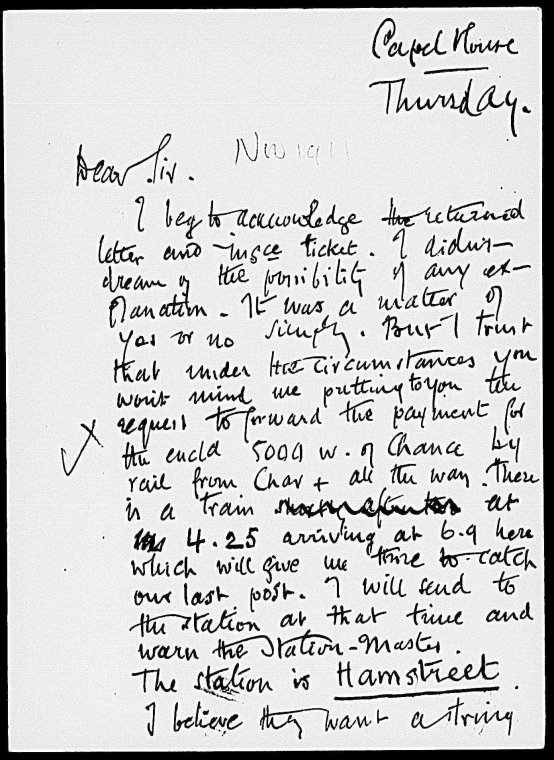 Capel House
Thursday.
Nov 1911
Dear Sir.
I beg to acknowledge the returned
letter and insce ticket. I didn't
dream of the possibility of any ex-
planation. It was a matter of
yes or no simply. But I trust
that under the circumstances you
won't mind me putting to you the
request to forward the payment for
the encld 5000 w. of Chance by
rail from Char + all the way. There
is a train at
4.25 arriving at 6.9 here
which will give me time to catch
our last post. I will send to
the station at that time and
warn the Station-Master.
The station is Hamstreet.
I believe they want a string